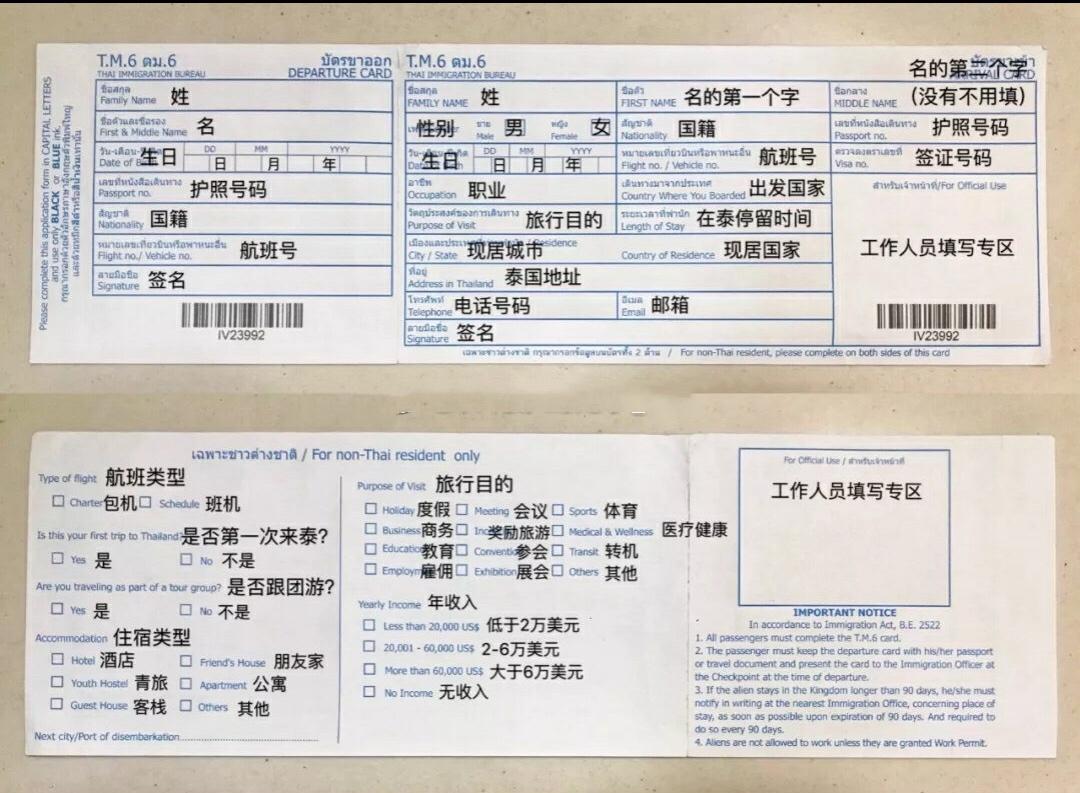 T.M.6 ตม.6
THAI IMMIGRATION BUREAU
บัตรขาออก
DEPARTURE CARD
Please complete this application form in CAPITAL LETTERS
and use only BLACK or BLUE ink.
ชื่อสกุล
Family Name 姓
ชื่อตัวและชื่อรอง
First & Middle Name 名
วัน-เดือน-
Date of 生日
DD MM YYYY
日 月 年
เลขที่หนังสือเดินทาง
Passport no. 护照号码
สัญชาติ
Nationality 国籍
หมายเลขเที่ยวบินหรือพาหนะอื่น
Flight no./ Vehicle no. 航班号
ลายมือชื่อ
Signature 签名
IV23992
T.M.6 ตม.6
THAI IMMIGRATION BUREAU
名的第一个字
ARRIVAL CARD
ชื่อสกุล
FAMILY NAME 姓
ชื่อตัว
FIRST NAME 名的第一个字
ชื่อกลาง
MIDDLE NAME (没有不用填)
性别
ชาย
Male 男
หญิง
Female 女
สัญชาติ
Nationality 国籍
เลขที่หนังสือเดินทาง
Passport no. 护照号码
生日
DD MM YYYY
日 月 年
หมายเลขเที่ยวบินหรือพาหนะอื่น
Flight no. / Vehicle no. 航班号
ตรวจลงตราเลขที่
Visa no. 签证号码
อาชีพ
Occupation 职业
เดินทางมาจากประเทศ
Country Where You Boarded 出发国家
สำหรับเจ้าหน้าที่/For Official Use
工作人员填写专区
วัตถุประสงค์ของการเดินทาง
Purpose of Visit 旅行目的
ระยะเวลาที่พำนัก
Length of Stay 在泰停留时间
เมืองและประเทศที่ / Residence
City / State 现居城市
Country of Residence 现居国家
ที่อยู่
Address in Thailand 泰国地址
โทรศัพท์
Telephone 电话号码
อีเมล
Email 邮箱
ลายมือชื่อ
Signature 签名
IV23992
เฉพาะชาวต่างชาติ กรุณากรอกข้อมูลบนบัตรทั้ง 2 ด้าน / For non-Thai resident, please complete on both sides of this card
เฉพาะชาวต่างชาติ / For non-Thai resident only
Type of flight 航班类型
Charter 包机 Schedule 班机
Is this your first trip to Thailand? 是否第一次来泰?
Yes 是 No 不是
Are you traveling as part of a tour group? 是否跟团游?
Yes 是 No 不是
Accommodation 住宿类型
Hotel 酒店 Friend's House 朋友家
Youth Hostel 青旅 Apartment 公寓
Guest House 客栈 Others 其他
Next city/Port of disembarkation
Purpose of Visit 旅行目的
Holiday 度假 Meeting 会议 Sports 体育
Business 商务 奖励旅游 Medical & Wellness 医疗健康
Education 教育 Convention 参会 Transit 转机
Employment 雇佣 Exhibition 展会 Others 其他
Yearly Income 年收入
Less than 20,000 US$ 低于2万美元
20,001 - 60,000 US$ 2-6万美元
More than 60,000 US$ 大于6万美元
No Income 无收入
For Official Use / สำหรับเจ้าหน้าที่
工作人员填写专区
IMPORTANT NOTICE
In accordance to Immigration Act, B.E. 2522
1. All passengers must complete the T.M.6 card.
2. The passenger must keep the departure card with his/her passport
or travel document and present the card to the Immigration Officer at
the Checkpoint at the time of departure.
3. If the alien stays in the Kingdom longer than 90 days, he/she must
notify in writing at the nearest Immigration Office, concerning place of
stay, as soon as possible upon expiration of 90 days. And required to
do so every 90 days.
4. Aliens are not allowed to work unless they are granted Work Permit.